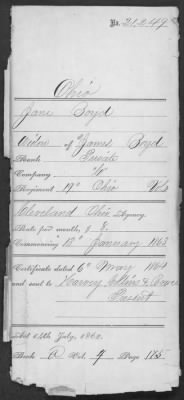 No. 21,249
Ohio
Jane Boyd
Widow of James Boyd
Rank Private
Company "
Regiment 19" Ohio Vols
Cleveland Ohio Agency.
Rate per month, $ 8.
Commencing 13" January 1863
Certificate dated 6" May 1864
and sent to Harvey, &
Present
Act 14th July, 1862.
Book A Vol. 4 Page 185